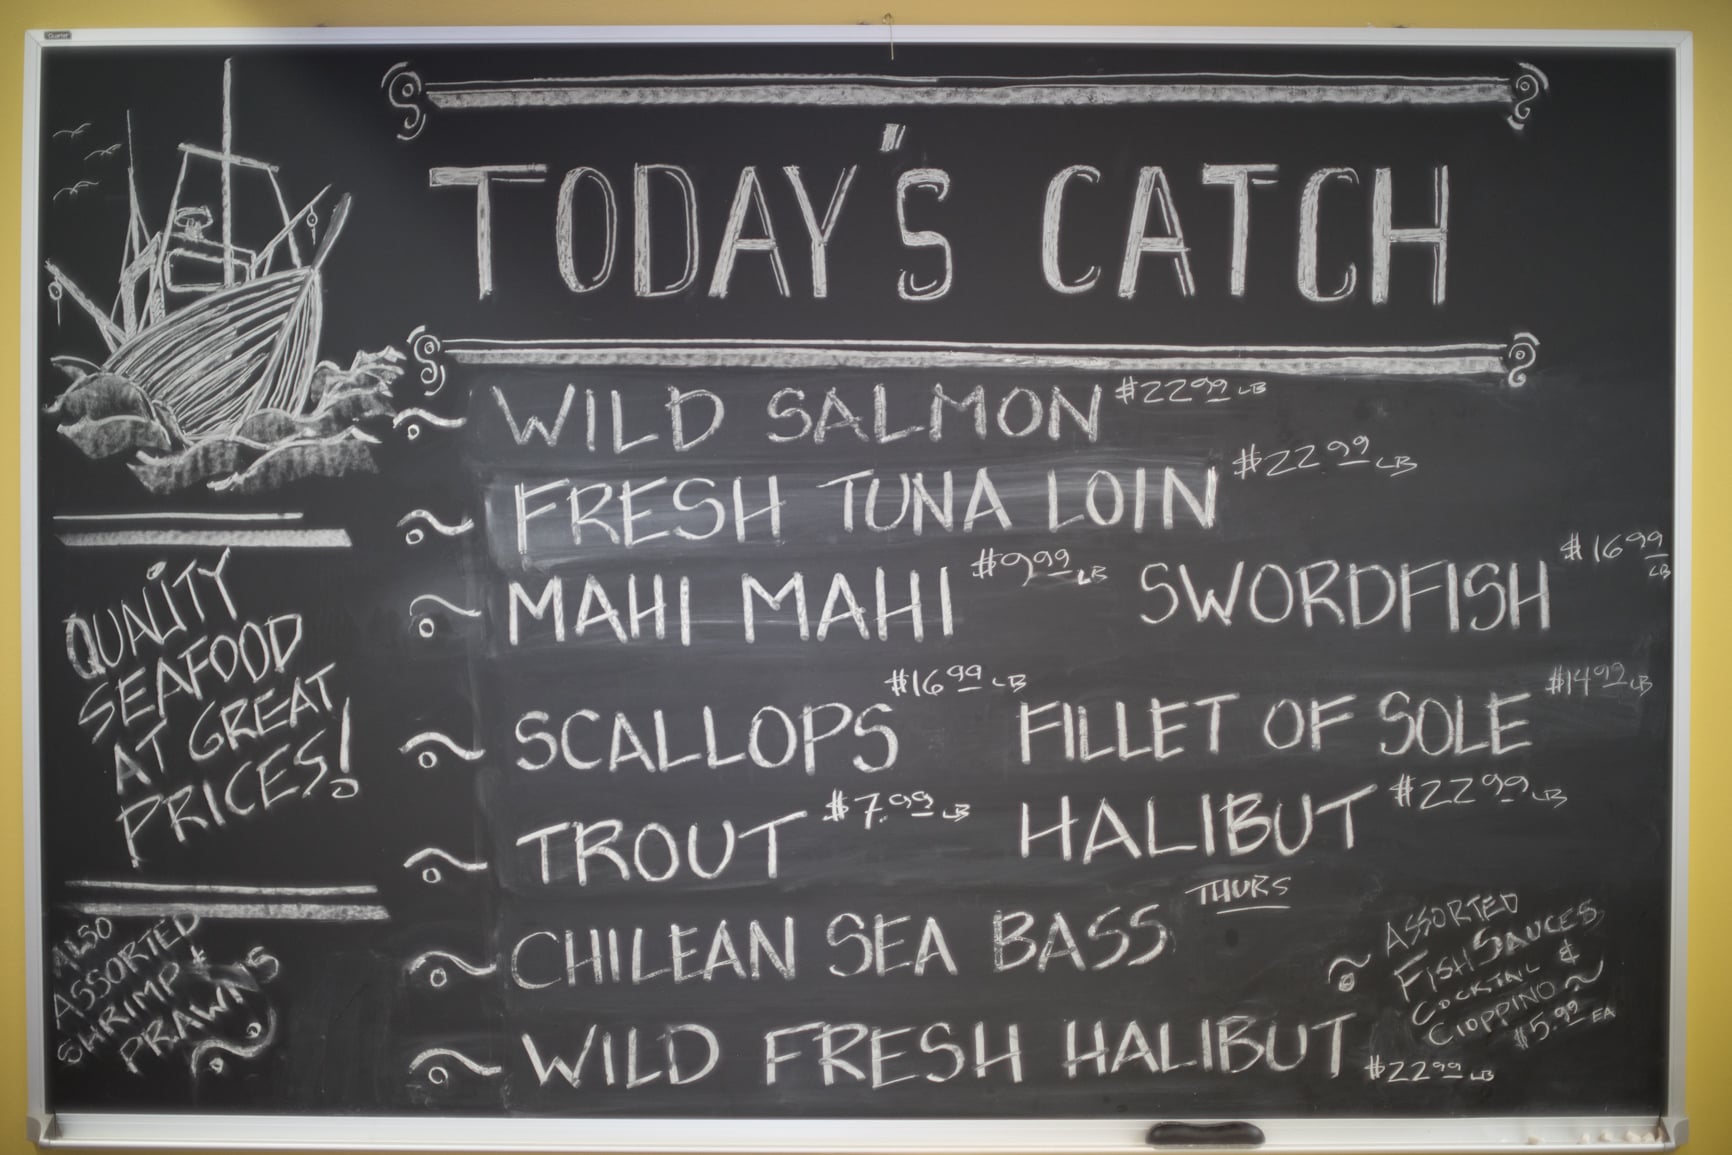 Quartet
TODAY'S CATCH
WILD SALMON $22.99 LB
FRESH TUNA LOIN $22.99 LB
MAHI MAHI $9.99 LB SWORDFISH $16.99 LB
SCALLOPS $16.99 LB FILLET OF SOLE $14.99 LB
TROUT $7.99 LB HALIBUT $22.99 LB
CHILEAN SEA BASS THURS
WILD FRESH HALIBUT $22.99 LB
QUALITY
SEAFOOD
AT GREAT
PRICES!
ALSO
ASSORTED
SHRIMP &
PRAWNS
ASSORTED
FISH SAUCES
COCKTAIL &
CIOPPINO
$5.99 EA